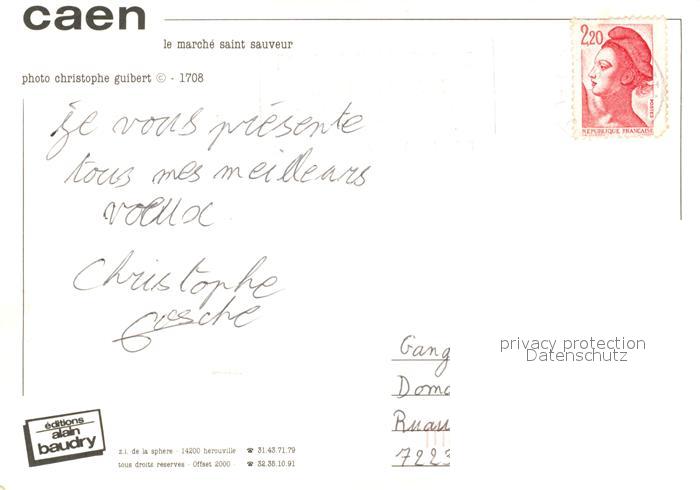 caen
le marché saint sauveur
photo christophe guibert © - 1708
2,20
POSTES
REPUBLIQUE FRANÇAISE
je vous présente
tous mes meilleurs
voeux
Christophe
privacy protection
Datenschutz
Gang
Doma
Ruau
7223
éditions
alain
baudry
z.i. de la sphere - 14200 herouville ☎ 31.43.71.79
tous droits reserves - Offset 2000 - ☎ 32.35.10.91